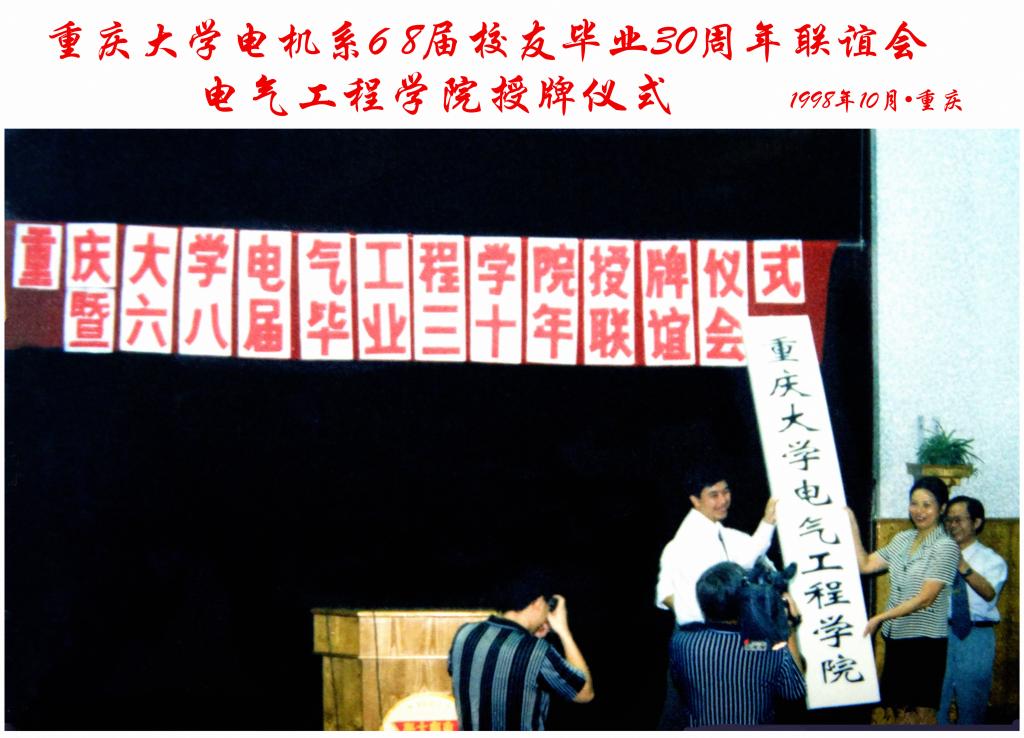 重庆大学电机系68届校友毕业30周年联谊会
电气工程学院授牌仪式
1998年10月·重庆
重庆大学电气工程学院授牌仪式
暨六八届毕业三十年联谊会
重庆大学电气工程学院